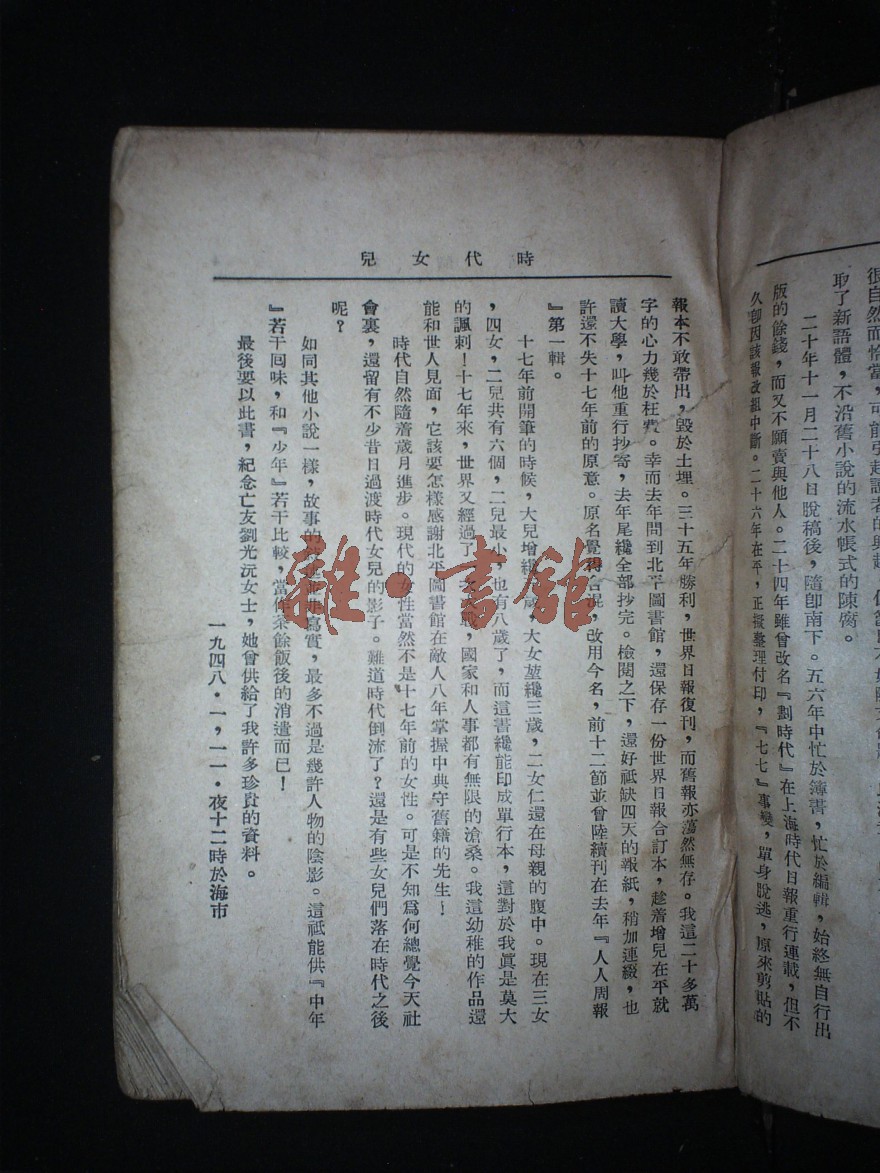 很自然而恰當,可能引起讀者的興趣
取了新語體,不沿舊小說的流水帳式的陳腐。
二十年十一月二十八日脫稿後,隨卽南下。五六年中忙於簿書,忙於編輯,始終無自行出
版的餘錢,而又不願賣與他人。二十四年雖曾改名『劃時代』在上海時代日報重行連載,但不
久卽因該報改組中斷。二十六年在平,正擬整理付印,『七七』事變,單身脫逃,原來剪貼的
時代女兒
報本不敢帶出,毀於土埋。三十五年勝利,世界日報復刊,而舊報亦蕩然無存。我這二十多萬
字的心力幾於枉費。幸而去年問到北平圖書館,還保存一份世界日報合訂本,趁着增兒在平就
讀大學,叫他重行抄寄,去年尾纔全部抄完。檢閱之下,還好祗缺四天的報紙,稍加連綴,也
許還不失十七年前的原意。原名覺得,改用今名,前十二節並曾陸續刊在去年『人人周報
』第一輯。
十七年前開筆的時候,大兒增纔歲,大女堃纔三歲,二女仁還在母親的腹中。現在三女
,四女,二兒共有六個,二兒最小,也有八歲了,而這書纔能印成單行本,這對於我眞是莫大
的諷刺!十七年來,世界又經過了大戰,國家和人事都有無限的滄桑。我這幼稚的作品還
能和世人見面,它該要怎樣感謝北平圖書館在敵人八年掌握中典守舊籍的先生!
時代自然隨着歲月進步。現代的女性當然不是十七年前的女性。可是不知爲何總覺今天社
會裏,還留有不少昔日過渡時代女兒的影子。難道時代倒流了?還是有些女兒們落在時代之後
呢?
如同其他小說一樣,故事的寫實,最多不過是幾許人物的陰影。這祗能供『中年
』若干回味,和『少年』若干比較,當作茶餘飯後的消遣而已!
最後要以此書,紀念亡友劉光沅女士,她曾供給了我許多珍貴的資料。
一九四八・一,一一・夜十二時於海市
雜・書館